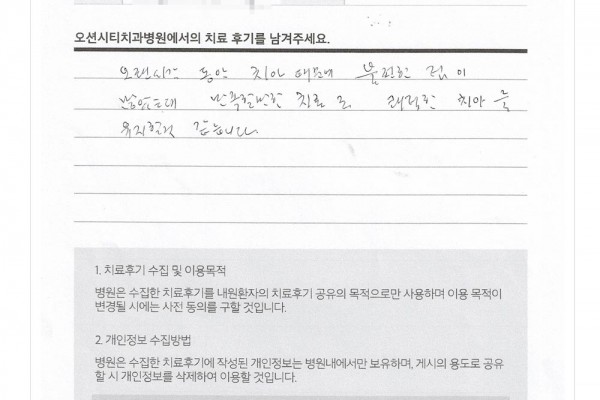 오션시티치과병원에서의 치료 후기를 남겨주세요.
오랜시간 동안 치아 때문에 불편한 점이
많았는데 만족할만한 치료로 쾌적한 치아를
유지할것 같습니다.
1. 치료후기 수집 및 이용목적
병원은 수집한 치료후기를 내원환자의 치료후기 공유의 목적으로만 사용하며 이용 목적이
변경될 시에는 사전 동의를 구할 것입니다.
2. 개인정보 수집방법
병원은 수집한 치료후기에 작성된 개인정보는 병원내에서만 보유하며, 게시의 용도로 공유
할 시 개인정보를 삭제하여 이용할 것입니다.